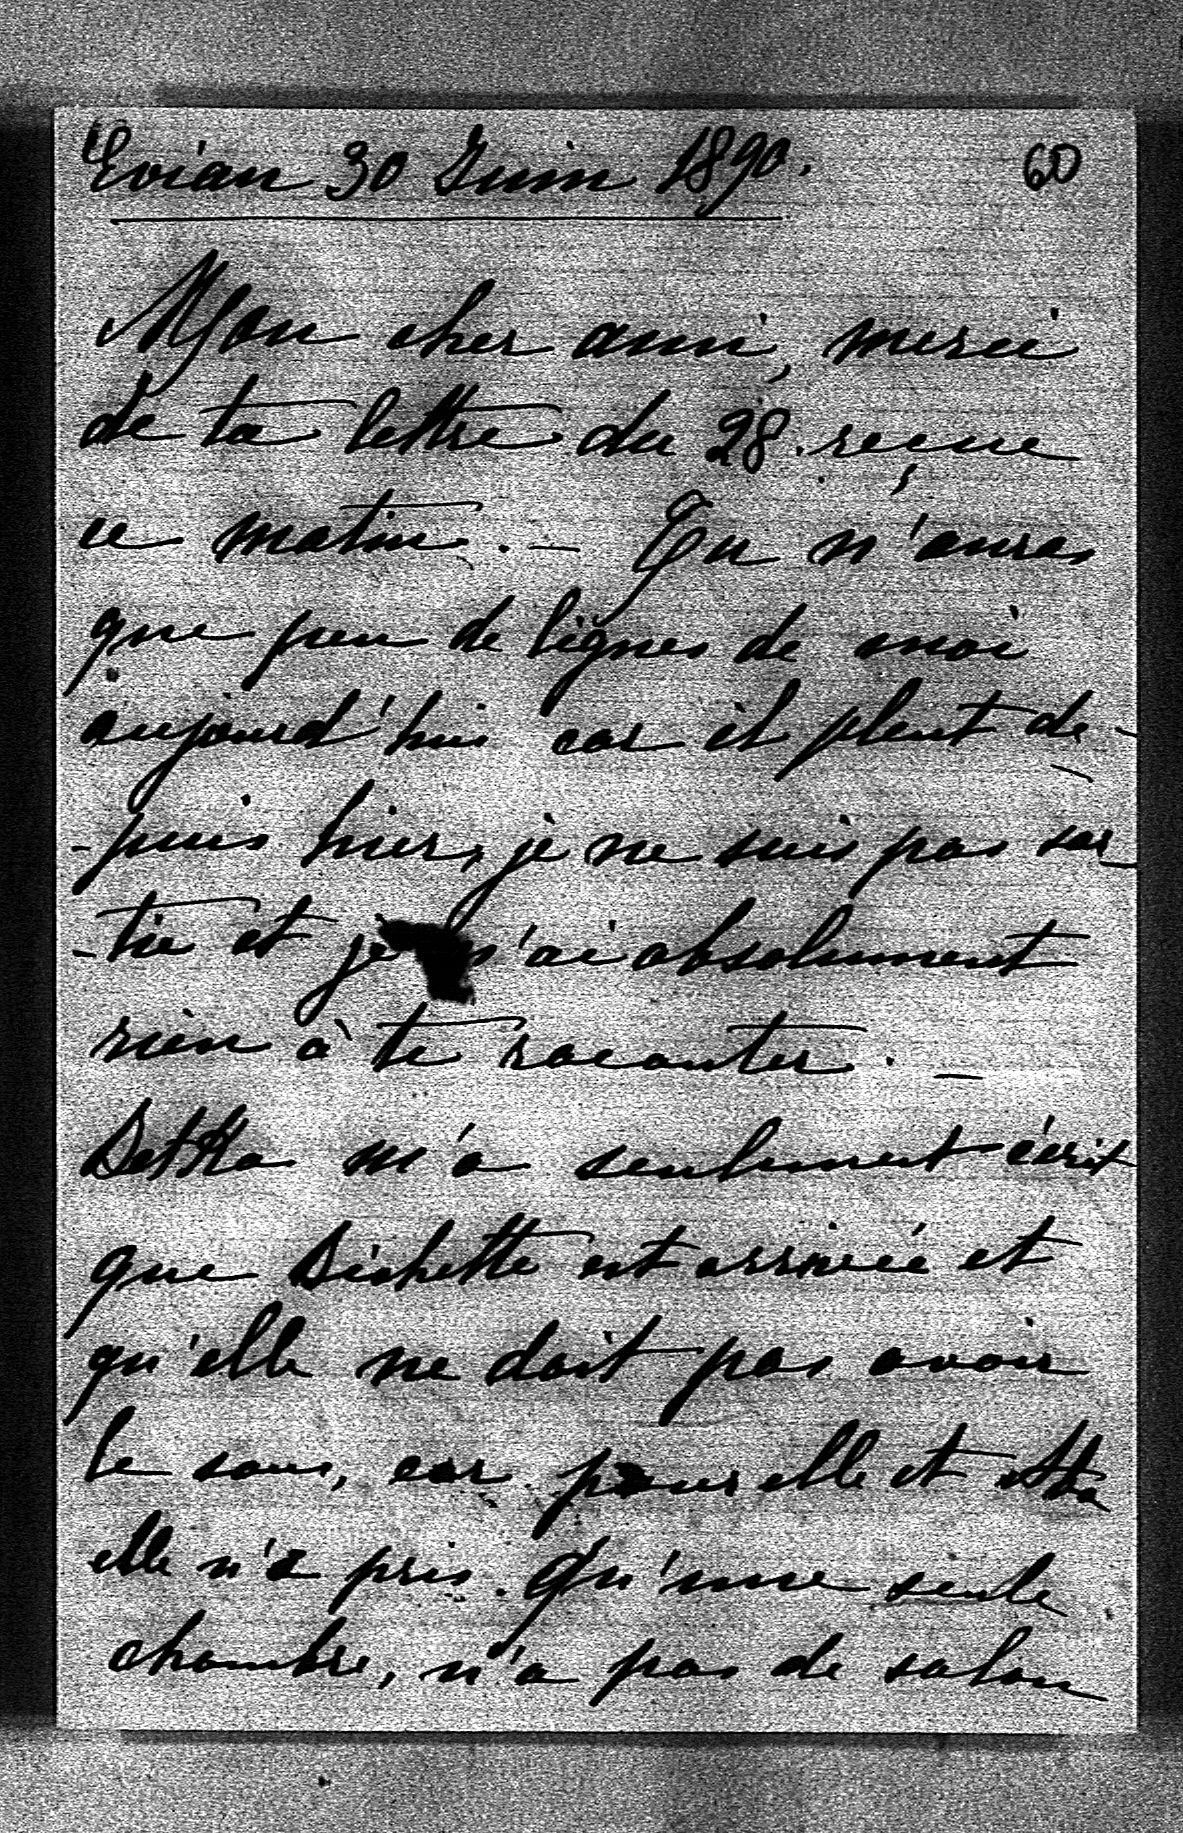 Evian 30 Juin 1890. 60
Mon cher ami, merci
de ta lettre du 28. reçue
ce matin. — Tu n'auras
que peu de lignes de moi
aujourd'hui car il pleut de-
-puis hier, je ne suis pas sor-
-tie et je n'ai absolument
rien à te raconter. —
Detka m'a seulement écrit
que Bichette est arrivée et
qu'elle ne doit pas avoir
le sou, car pour elle et
elle n'a pris qu'une seule
chambre, n'a pas de salon